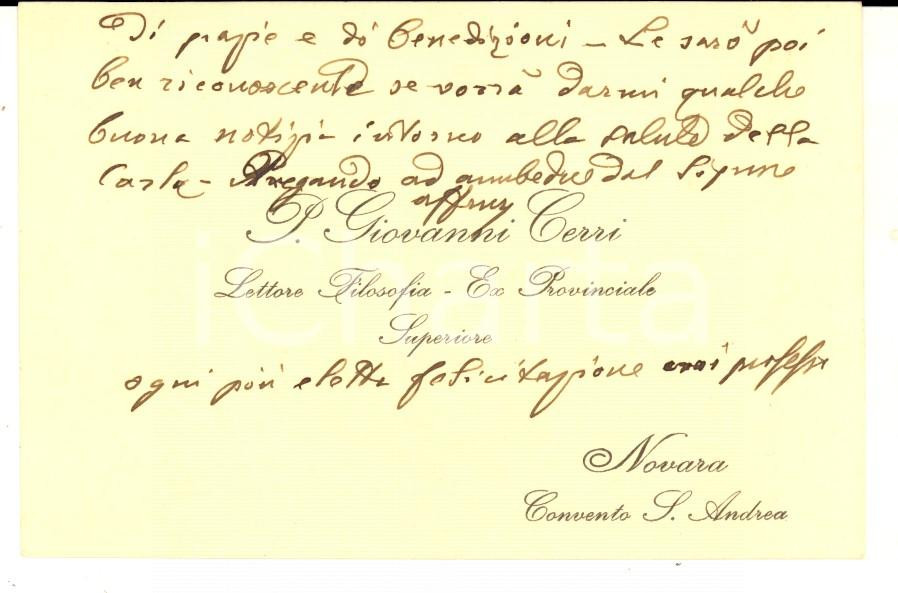 di grazie e di benedizioni - Le sarò poi
ben riconoscente se vorrà darmi qualche
buona notizia intorno alla salute della
Carla - Pregando ad ambedue dal Signore
P. Giovanni Cerri
Lettore Filosofia - Ex Provinciale
Superiore
ogni più eletta felicitazione
Novara
Convento S. Andrea
iCharta